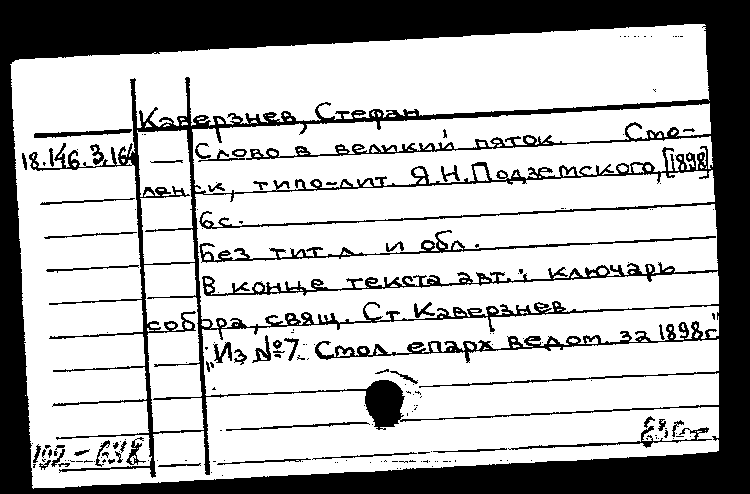 Каверзнев, Стефан
18.146.3.164 — Слово в великий пяток. Смо-
ленск, типо-лит. Я.Н.Подземского, [1898].
6с.
Без тит.л. и обл.
В конце текста авт.: ключарь
собора, свящ. Ст. Каверзнев.
"Из №7 Смол. епарх ведом. за 1898г"
192-648